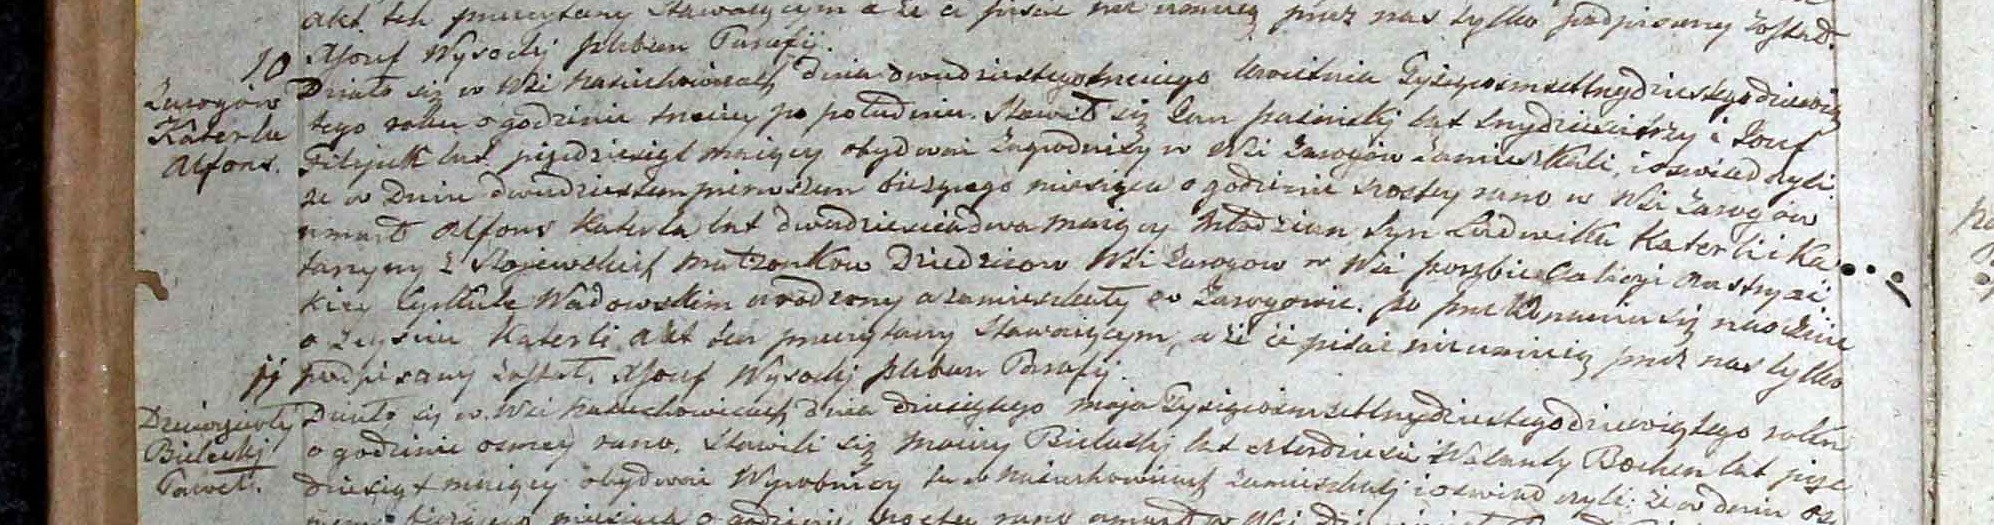 akt ten przeczytany Stawaiącym a że ci pisać nie umieią przez nas tylko podpisany został.
Xsiądz Józef Wysocki pleban Parafii.
10
Żarogów
Katerla
Alfons.
Działo się w Wsi Nasiechowicach dnia dwudziestego trzeciego Kwietnia Tysiącosmsettrzydziestegodziewią
tego roku o godzinie trzeciey po południu. Stawił się Jan lat trzydzieścitrzy i Jozef
Filipek lat pięćdziesiąt maiący obydwai Zagrodnicy w Wsi Żarogów Zamieszkali, i oswiadczyli
że w Dniu dwudziestempierwszem bieżącego miesiąca o godzinie szostey rano w Wsi Żarogów
umarł Alfons Katerla lat dwadzieściadwa maiący Młodzian Syn Ludwika Katerli i Ka
tarzyny z małżonków Dziedziców Wsi Żarogow w Wsi Galicyi Austryac
kiey Cyrkule Wadowskim urodzony a zamieszkały w Żarogowie. po przekonaniu się naocznie
o zeyściu Katerli, akt ten przeczytany Stawaiącym, a że ci pisać nieumieią przez nas tylko
podpisany został. Xsiądz Józef Wysocki pleban Parafii.
11
Dziewięcioły
Bielecki
Paweł.
Działo się w Wsi Nasiechowicach dnia dziesiątego maja Tysiącosmsettrzydziestegodziewiątego roku
o godzinie osmey rano. Stawili się Maciey Bielecki lat czterdzieści i Walenty Bochen lat pięć
dziesiąt maiący obydwai Wyrobnicy tu w Nasiechowicach zamieszkali i oswiadczyli: że w dniu os
bieżącego miesiąca o godzinie rano umarł w Wsi